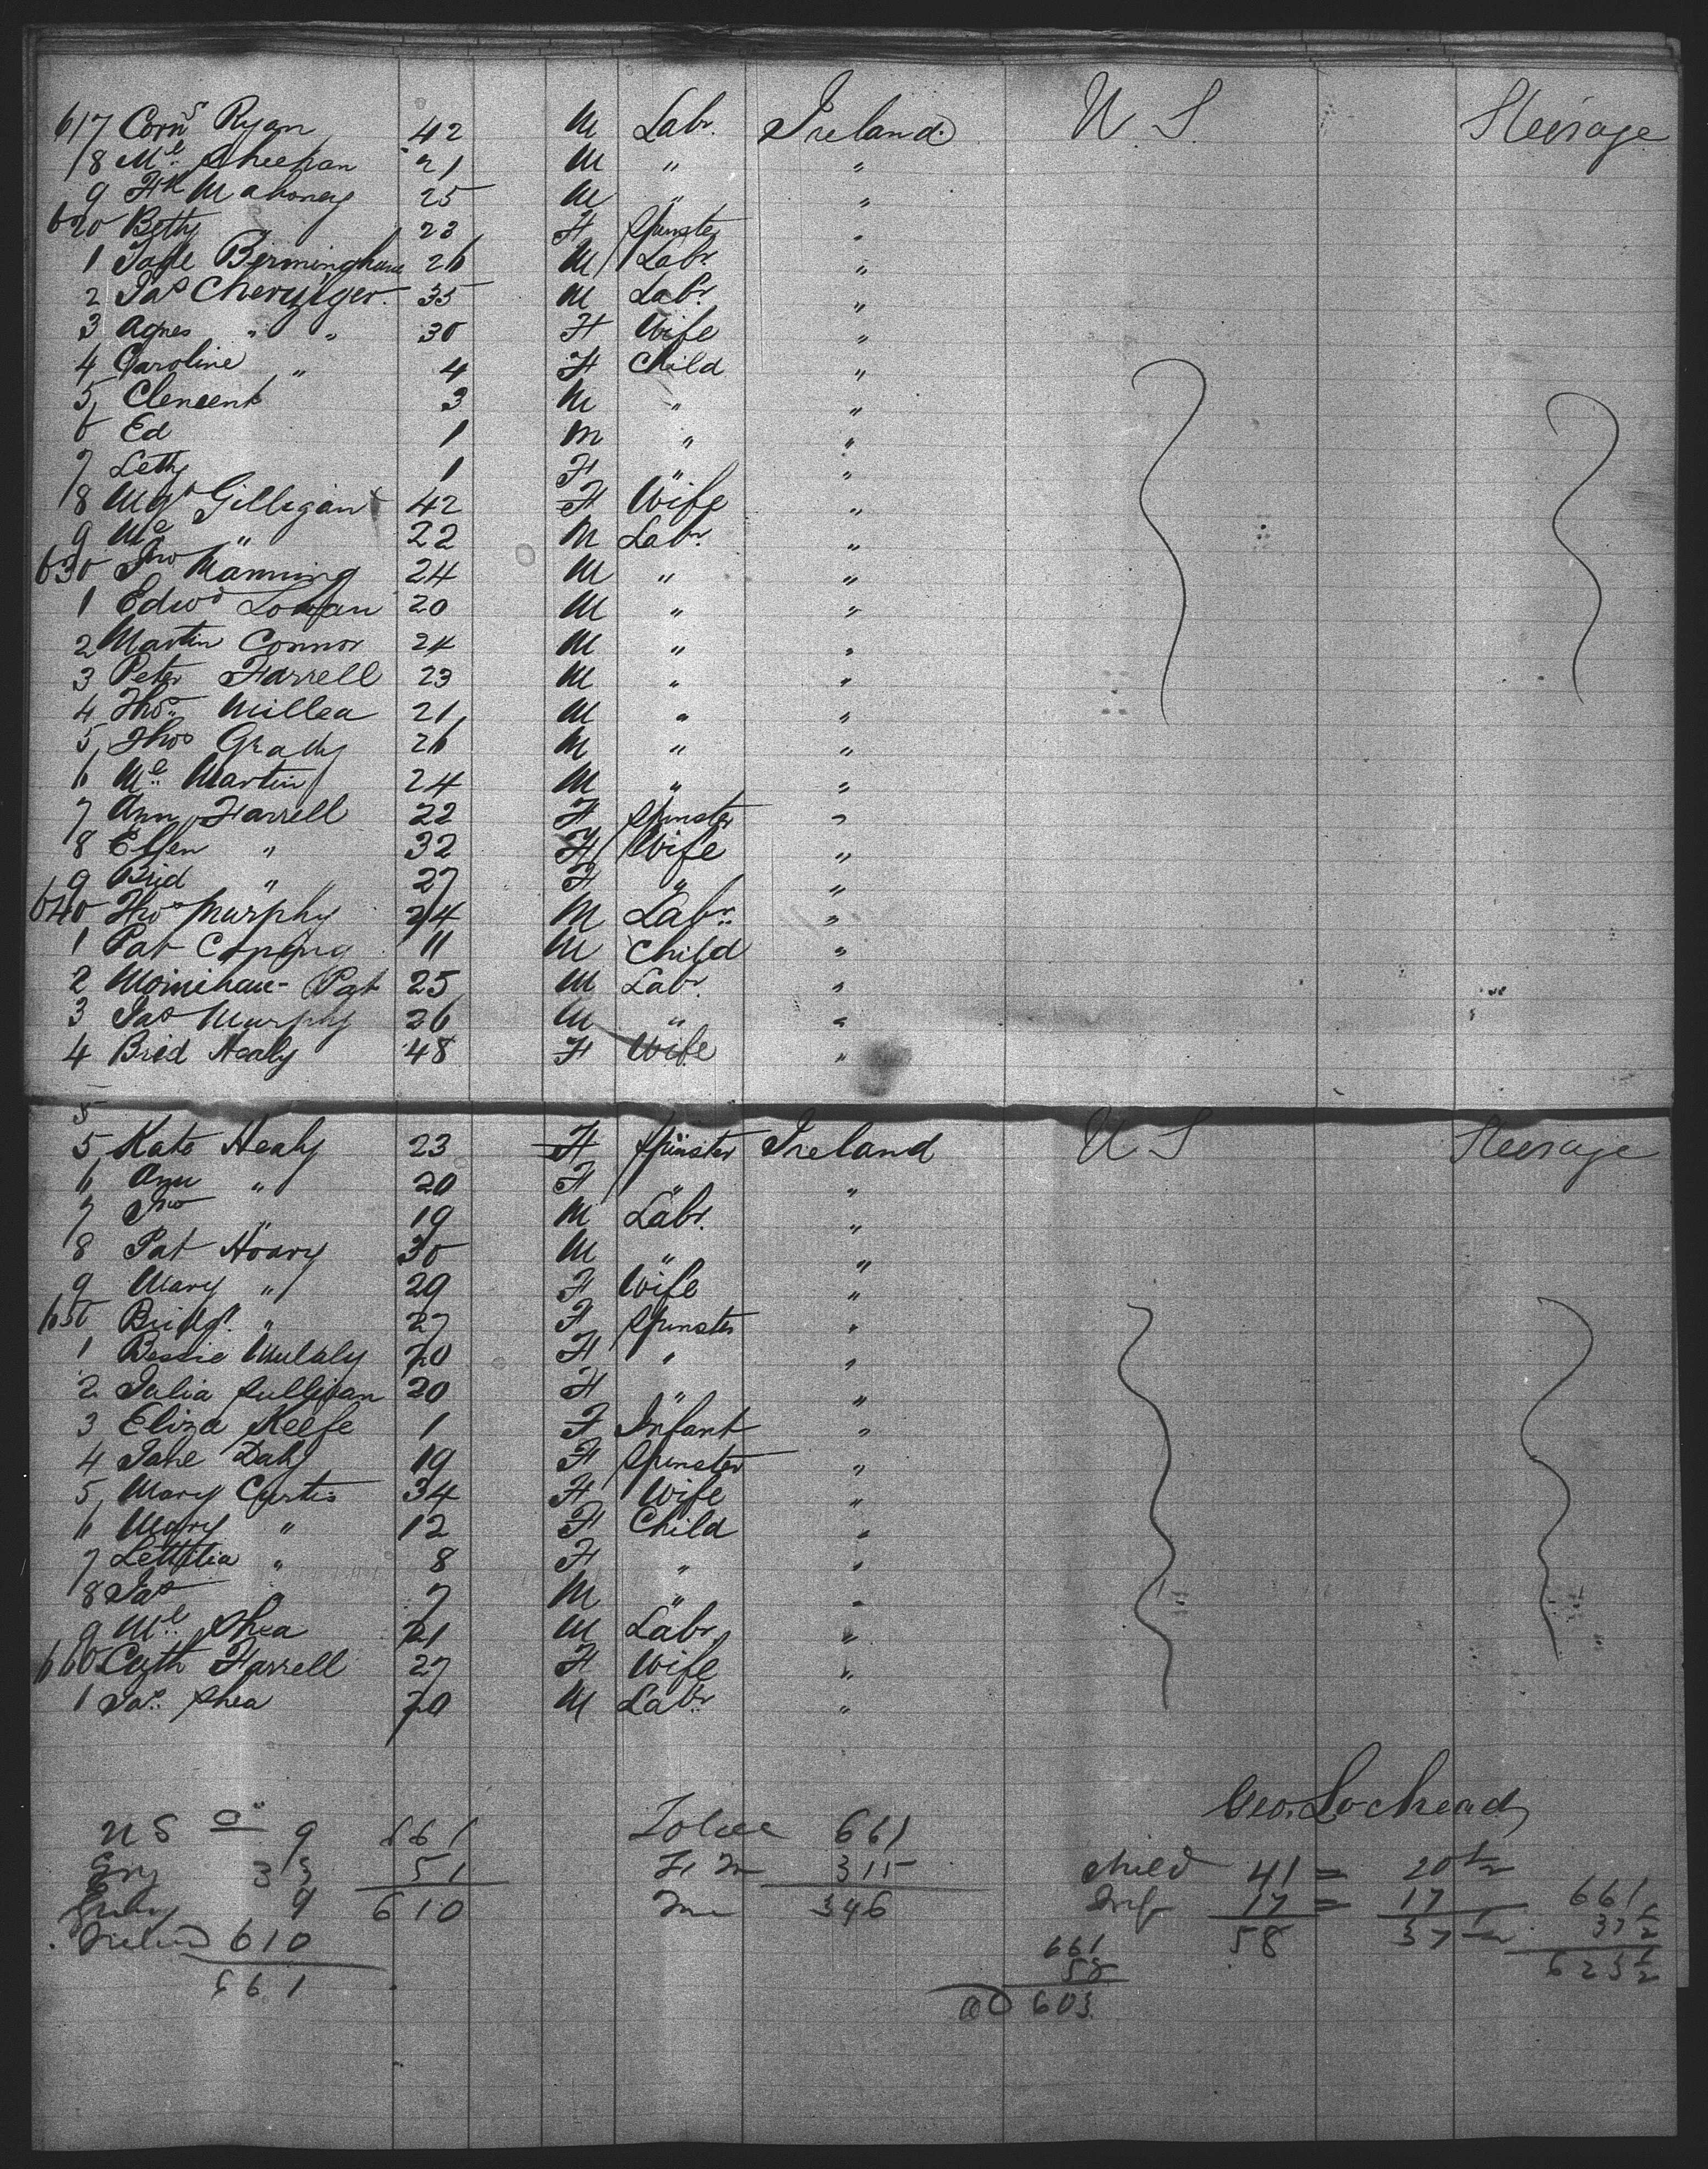 617 Corns Ryan 42 M Labr. Ireland U S Steerage
18 Ml Sheehan 21 M " "
9 Fk Mahoney 25 M " "
620 Betty 23 F Spinster "
1 Birmingham 26 M Labr "
2 Jas 35 M Labr "
3 Agnes " " 30 F Wife "
4 Caroline " 4 F Child "
5 Clement 3 M " "
6 Ed 1 M " "
7 Letty 1 F " "
8 Mgt Gilligan 42 F Wife "
9 Ml " 22 M Labr "
630 Jno Manning 24 M " "
1 Edwd 20 M " "
2 Martin Connor 24 M " "
3 Peter Farrell 23 M " "
4 Thos Millea 21 M " "
5 Thos Grady 26 M " "
6 Ml Martin 24 M " "
7 Ann Farrell 22 F Spinster "
8 Ellen " 32 F Wife "
9 Brid " 27 F " "
640 Thos Murphy 24 M Labr "
1 Pat 11 M Child "
2 Moinihan - Pat 25 M Labr "
3 Jas Murphy 26 M " "
4 Brid Healy 48 F Wife "
5
5 Kate Healy 23 F Spinster Ireland U S Steerage
6 Ann " 20 F " "
7 Jno " 19 M Labr. "
8 Pat Hoary 30 M " "
9 Mary " 29 F Wife "
650 Bridgt. " 27 F Spinster "
1 Bessie Mullaly 20 F " "
2 Julia Sullivan 20 F " "
3 Eliza Keefe 1 F Infant "
4 Jane Daly 19 F Spinster "
5 Mary Curtis 34 F Wife "
6 Mary " 12 F Child "
7 Lettitia " 8 F " "
8 Jas " 7 M " "
9 Ml Shea 21 M Labr "
660 Cath Farrell 27 F Wife "
1 Jas. Shea 20 M Labr "
Geo. Lochead
U S 9 661 661
33 51 315 Child 41 = 20 1/2
9 610 346 Inf 17 = 17 661
610 58 37 1/2 37 1/2
661 661 623 1/2
58
603